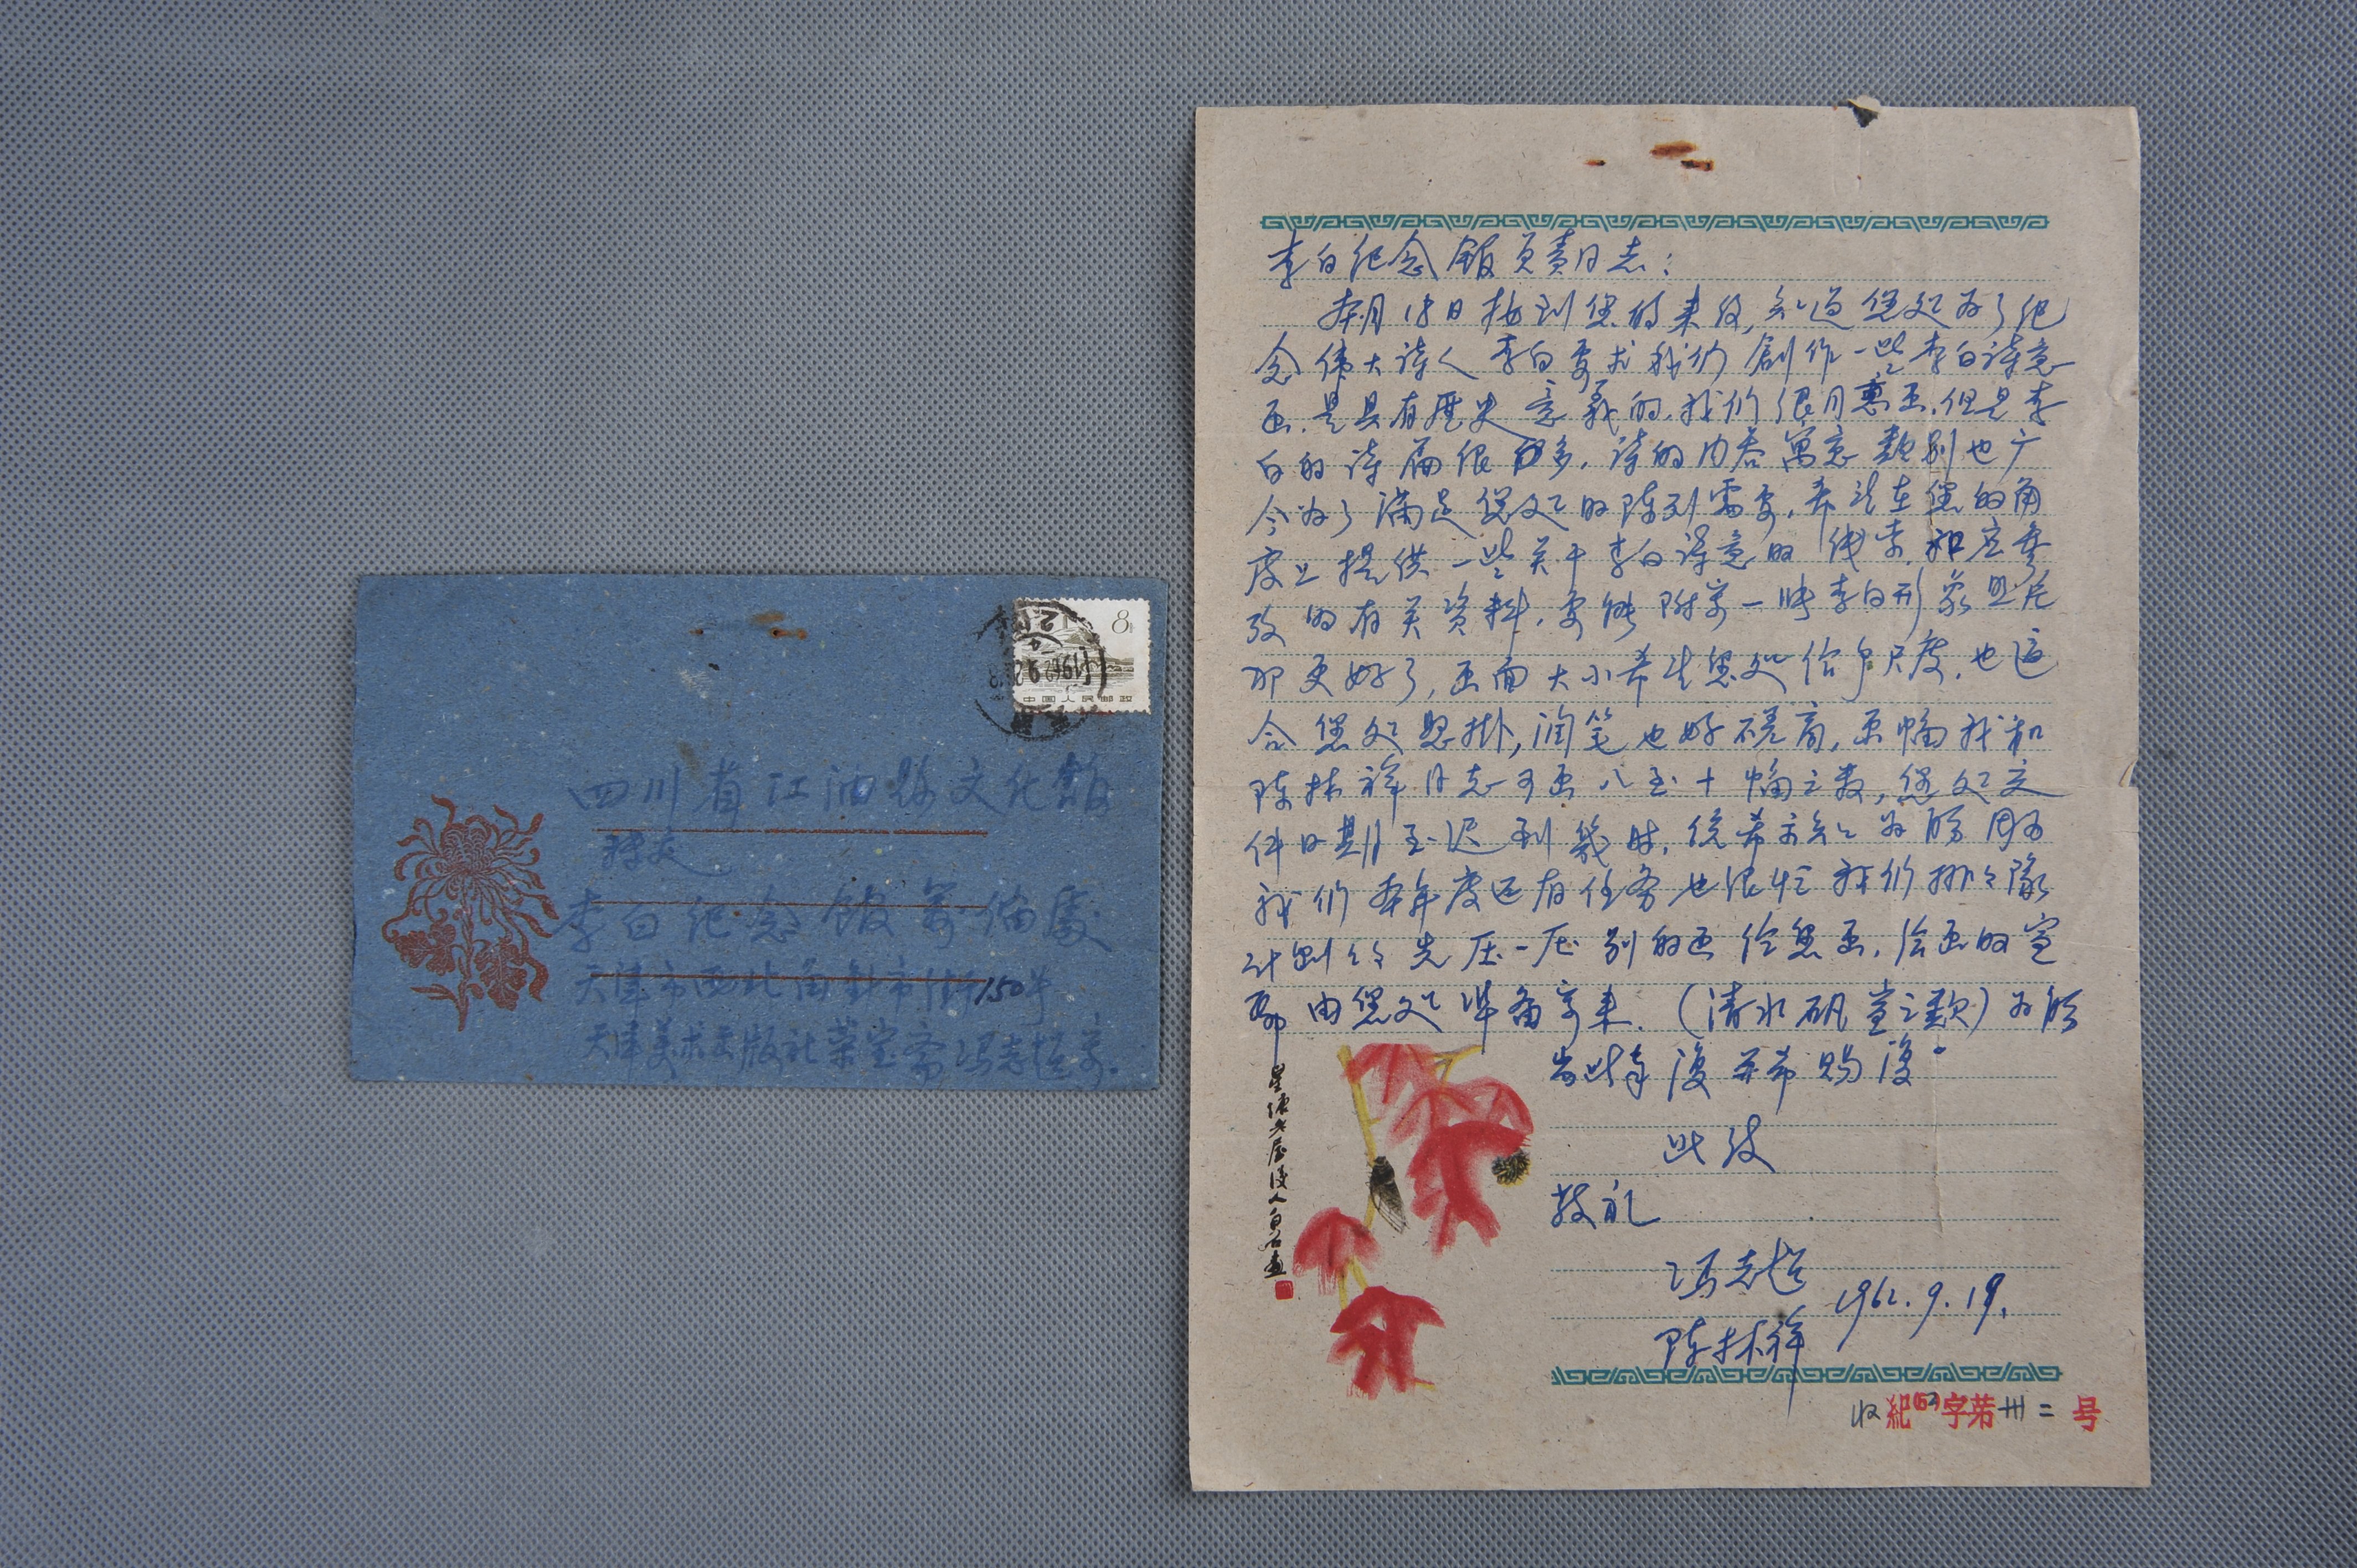 四川省江油县文化馆
转交
李白纪念馆筹备处
天津市西北角针市街150号
天津美术出版社荣宝斋冯志超寄
8
中国人民邮政
1962.9.2
李白纪念馆负责同志:
本月18日接到您的来信,知道您处为了纪
念伟大诗人李白要求我们创作一些李白诗意
画.是具有歷史意義的.我们很同意画.但是李
白的诗篇很多.诗的内容寓意類别也广
今为了满足您处的陈列需要.希望在您的角
度上提供一些关于李白诗意的线索.和应参
考的有关资料.要能附寄一张李白形象照片
那更好了,画面大小希望您处给予尺度.也适
合您处悬掛,润笔也好磋商,画幅我和
陈林祥同志可画八至十幅之数,您处交
件日期至迟到幾时,统希示知为盼 因为
我们本年度还有任务也很忙 我们排々隊
计划々先压一压别的画给您画.绘画的宣
帋由您处準备寄来.(清水矾宣之類)为盼
岩此奉復并希赐復。
此致
敬礼
冯志超
陈林祥 1962.9.19.
星塘老屋後人白石畫
收紀(62)字第卅二号